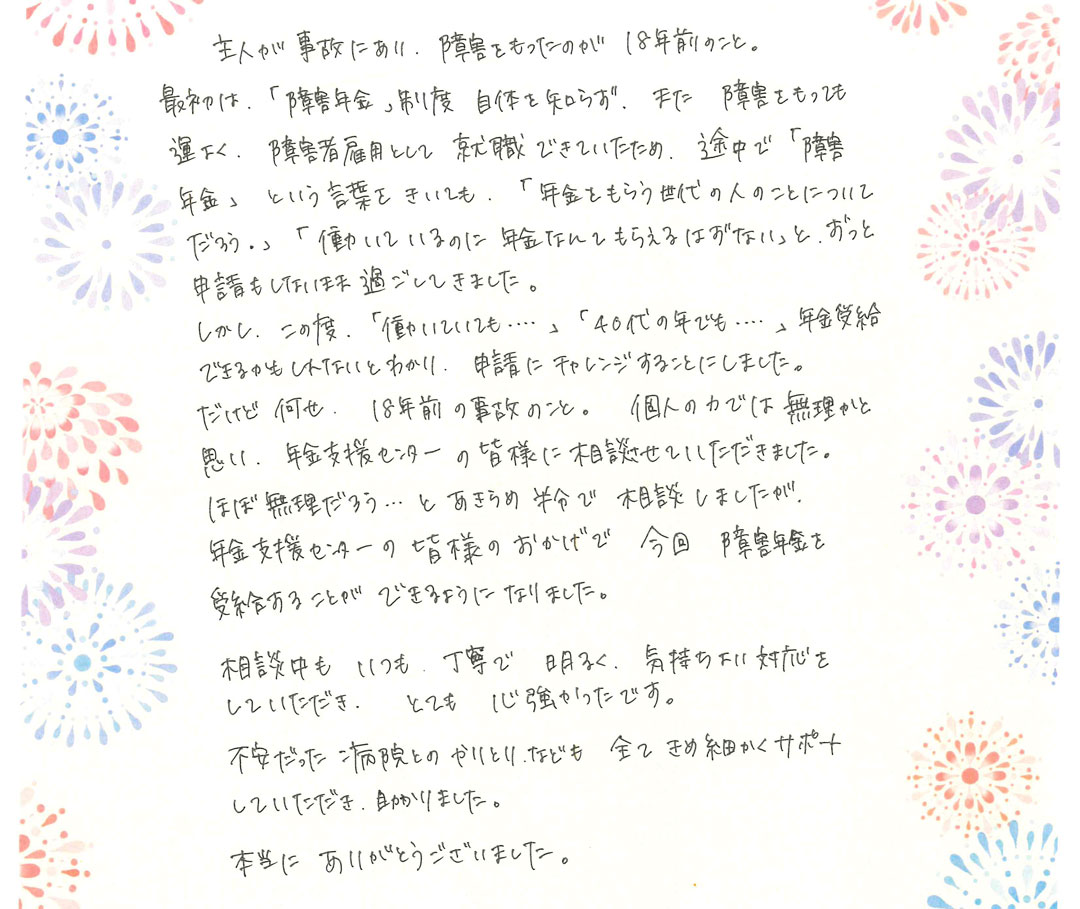 主人が事故にあい、障害をもったのが 18年前のこと。
最初は、「障害年金」制度 自体を知らず、また 障害をもっても
運よく、障害者雇用として 就職できていたため、途中で「障害
年金」という言葉をきいても、「年金をもらう世代の人のことについて
だろう。」「働いているのに年金なんてもらえるはずない」と、ずっと
申請もしないまま過ごしてきました。
しかし、この度、「働いていても‥‥」「40代の年でも‥‥」年金受給
できるかもしれないとわかり、申請にチャレンジすることにしました。
だけど何せ、18年前の事故のこと。 個人の力では無理かと
思い、年金支援センターの皆様に相談させていただきました。
ほぼ無理だろう…とあきらめ半分で 相談しましたが、
年金支援センターの皆様のおかげで 今回 障害年金を
受給することが できるようになりました。
相談中も いつも、丁寧で 明るく、気持ちよい対応を
していただき、とても 心強かったです。
不安だった病院とのやりとりなども 全てきめ細かくサポート
していただき、助かりました。
本当に ありがとうございました。